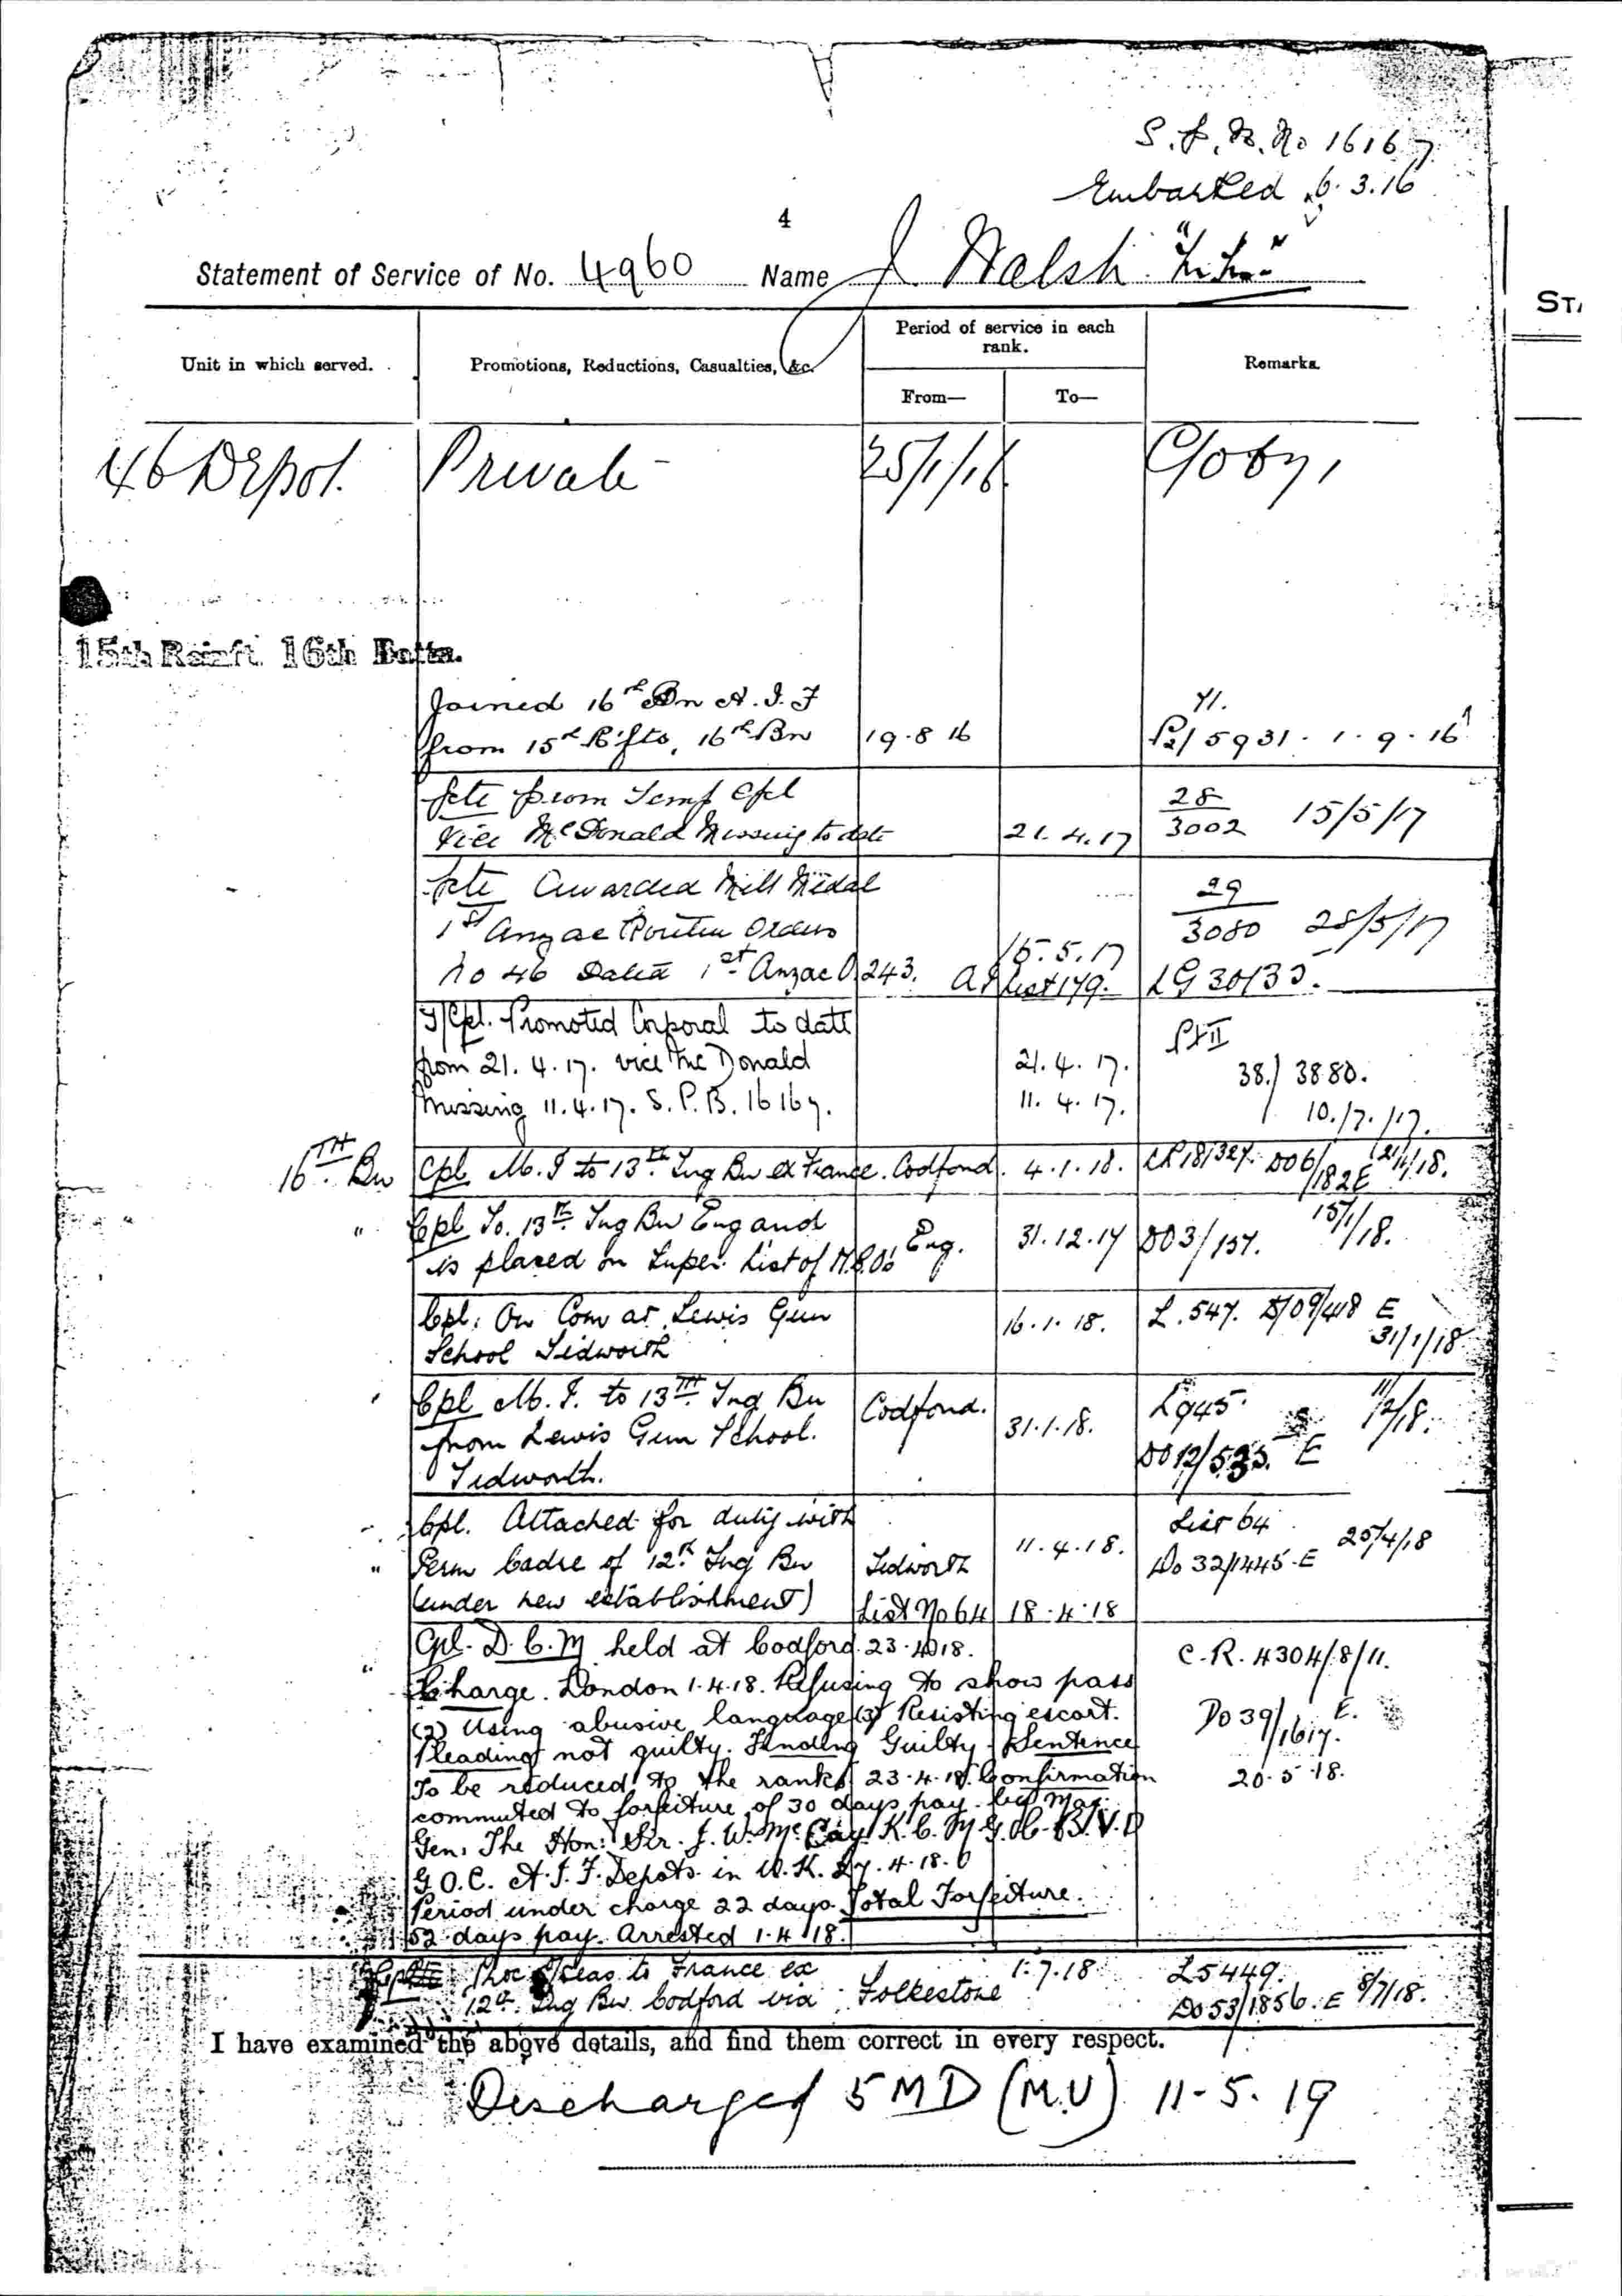 S.P.B. No 16167
Embarked 6.3.16
4
Statement of Service of No. 4960 Name J Walsh
STA
Unit in which served. Promotions, Reductions, Casualties, &c. Period of service in each rank. Remarks.
From— To—
46 Depot. Private 25/1/16
15th Reinft. 16th Battn.
Joined 16th Bn A.I.F
from 15th R'fts, 16th Bn 19.8 16 5931. 1.9.16
Pte prom Temp Cpl 28
Vice McDonald Missing to date 21.4.17 3002 15/5/17
Pte Awarded Mill Medal 29
1st Anzac Routin Orders 15.5.17 3080 28/5/17
No 46 Dated 1st Anzac 243. List 179. LG 30133.
T/Cpl. Promoted Corporal to date Pt II
from 21.4.17. vice Mc Donald 21.4.17. 38./3880.
missing 11.4.17. S.P.B. 16167. 11.4.17. 10./7./17.
16TH Bn Cpl M.I to 13th Tng Bn ex France. Codford. 4.1.18. DO6/182E 21/1/18.
" Cpl To. 13th Tng Bn Eng and Eng. 31.12.17 DO3/157. 15/1/18.
is placed on Super. List of N.C.Os
Cpl. On Com at Lewis Gun 16.1.18. L.547. E
School Tidworth 31/1/18
" Cpl M.I. to 13TH Tng Bn Codford. 31.1.18. L945. 11/2/18.
from Lewis Gun School. DO12/ E
Tidworth.
Cpl. Attached for duty with 11.4.18. List 64 25/4/18
" Perm Cadre of 12th Tng Bn Tidworth Do 32/1445.E
(under new establishment) List No 64 18.4.18
Cpl. D.C.M held at Codford 23.4.18. C.R. 4304/8/11.
" Charge. London 1.4.18. Refusing to show pass
(2) Using abusive language (3) Resisting escort. Do 39/1617. E.
Pleading not guilty. Finding Guilty. Sentence 20.5.18.
To be reduced to the ranks 23.4.18. Confirmation
commuted to forfeiture of 30 days pay. by Maj.
Gen. The Hon: Sir. J. W. McCay. K.C.M.G. C.B. V.D
G.O.C. A.I.F. Depots in U.K. 27.4.18.
Period under charge 22 days. Total Forfeiture.
52 days pay. Arrested 1.4.18.
Proc O/seas to France ex 1.7.18 L5449.
12th Tng Bn Codford via Folkestone Do 53/1856.E 8/7/18.
I have examined the above details, and find them correct in every respect.
Discharged 5 MD (M.U) 11-5.19